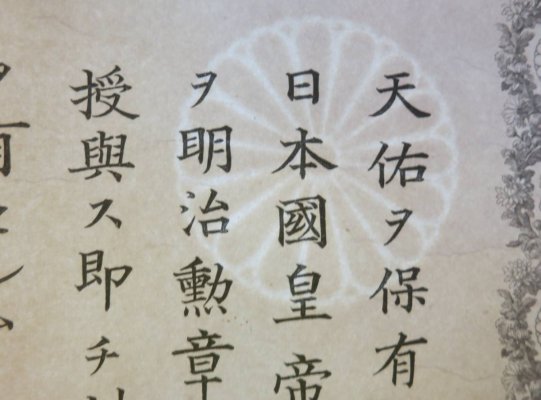 天佑ヲ保有
日本國皇帝
ヲ明治勲章
授與ス即チ